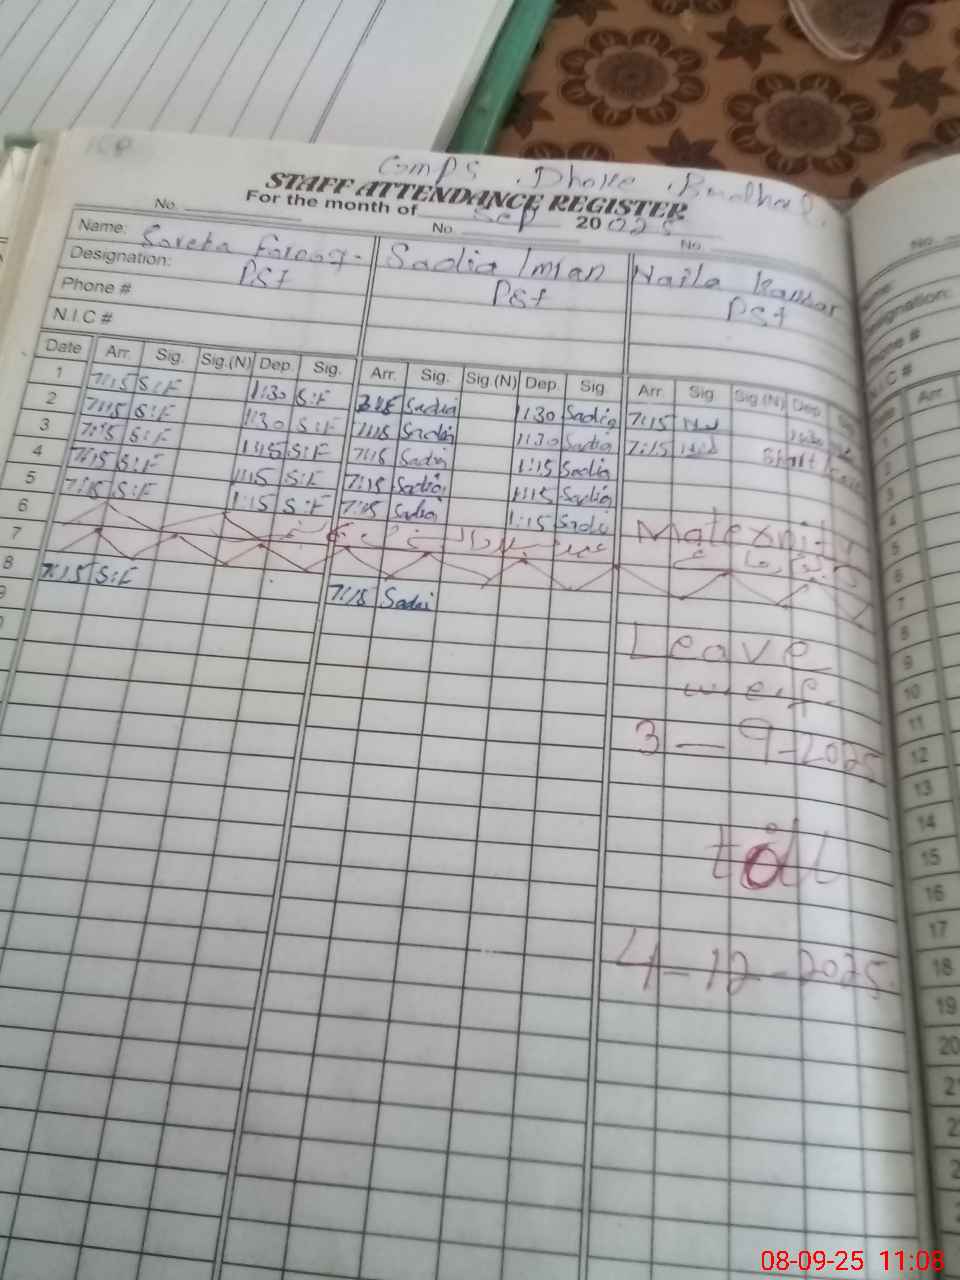 GMPS. Dhoke Budhal.
STAFF ATTENDANCE REGISTER
For the month of Sep 2025
No. No. No.
Name: Farooq. Sadia Imran Naila Kausar
Designation: PST PST PST
Phone #
N.I.C #
Date Arr. Sig. Sig.(N) Dep. Sig. Arr. Sig. Sig.(N) Dep. Sig. Arr. Sig. Sig (N) Dep. Sig
1 7:15 S:F 1:30 S:F Sadia 1:30 Sadia 7:15
2 7:15 S:F 1:30 S:F 7:15 Sadia 1:30 Sadia 7:15
3 7:15 S:F 1:15 S:F 7:15 Sadia 1:15 Sadia
4 7:15 S:F 1:15 S:F 7:15 Sadia 1:15 Sadia
5 7:15 S:F 1:15 S:F 7:15 Sadia 1:15 Sadia
6
7
8 7:15 S:F 7:15 Sadia
9
Maternity
Leave
w.e.f
3-9-2025
till
4-12-2025.
No.
Designation:
N.I.C #
Arr.
3
4
5
6
7
8
9
10
11
12
13
14
15
16
17
18
19
20
08-09-25 11:08